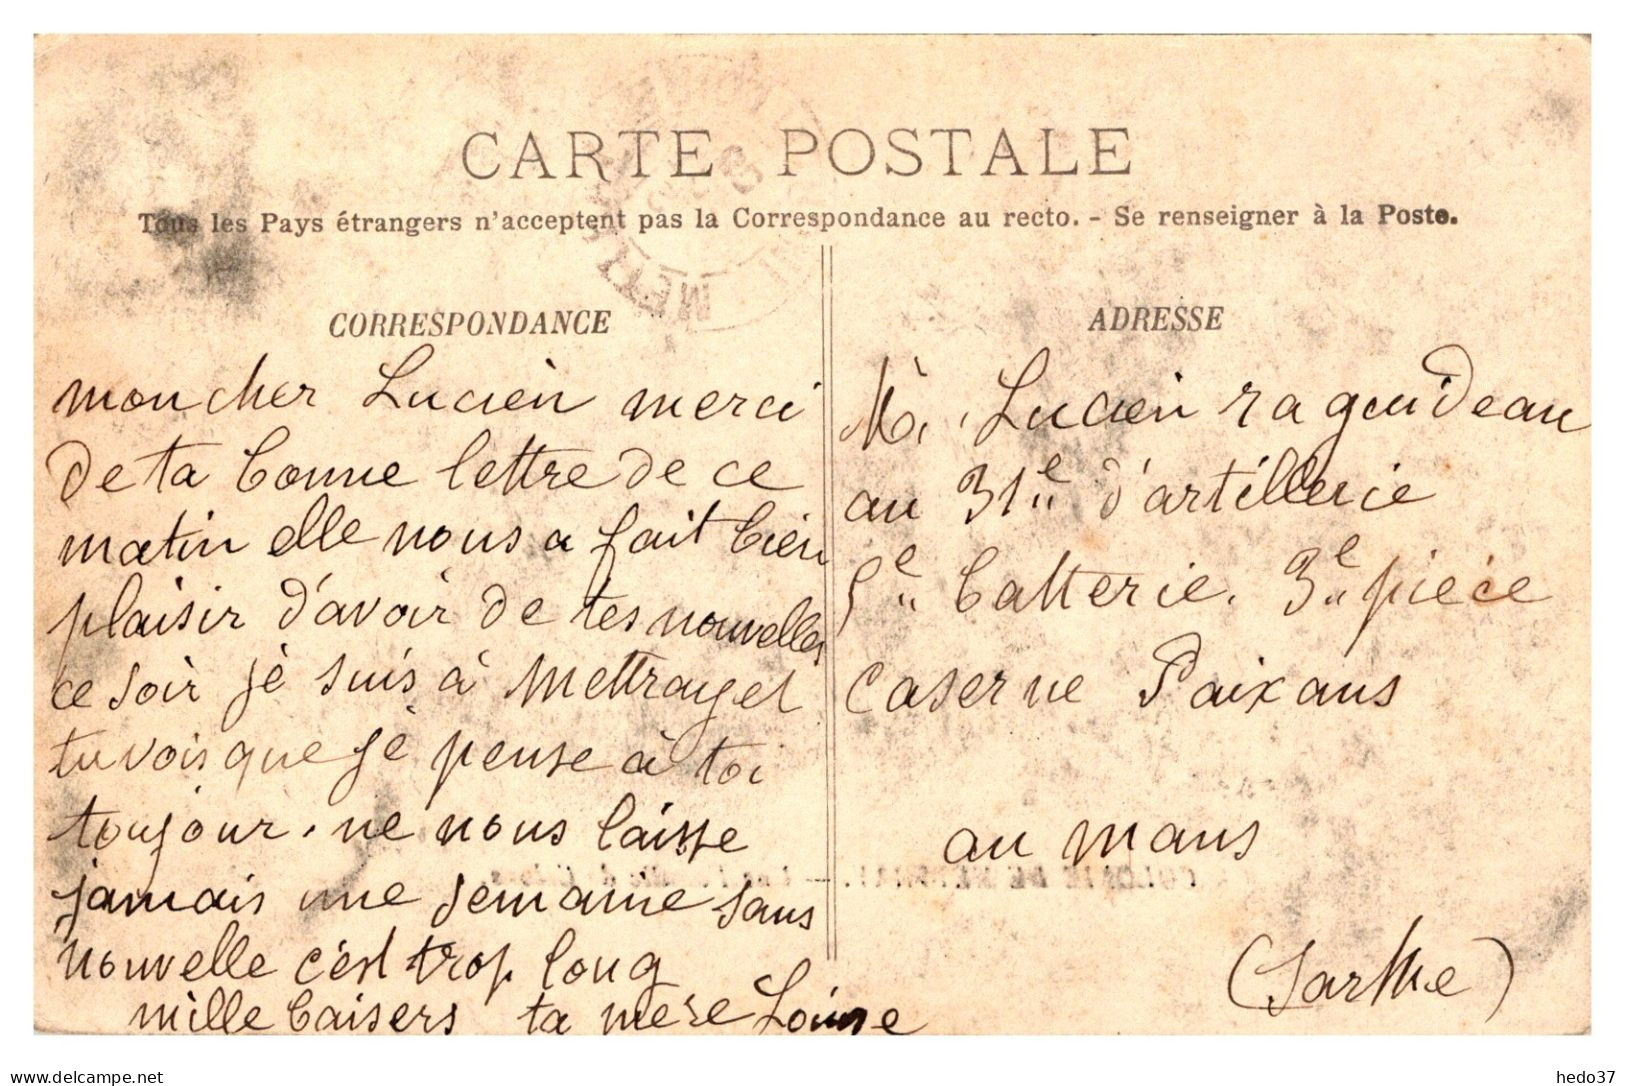 CARTE POSTALE
Tous les Pays étrangers n'acceptent pas la Correspondance au recto. - Se renseigner à la Poste.
CORRESPONDANCE
mon cher Lucien merci
de ta bonne lettre de ce
matin elle nous a fait bien
plaisir d'avoir de tes nouvelles
ce soir je suis à Mettray et
tu vois que je pense à toi
toujour. ne nous laisse
jamais une semaine sans
nouvelle c'est trop long
mille baisers ta mere Louise
ADRESSE
M. Lucien raguideau
au 31e d'artillerie
5e batterie. 3e pièce
Caserne Paixans
au mans
(Sarthe)
www.delcampe.net
hedo37